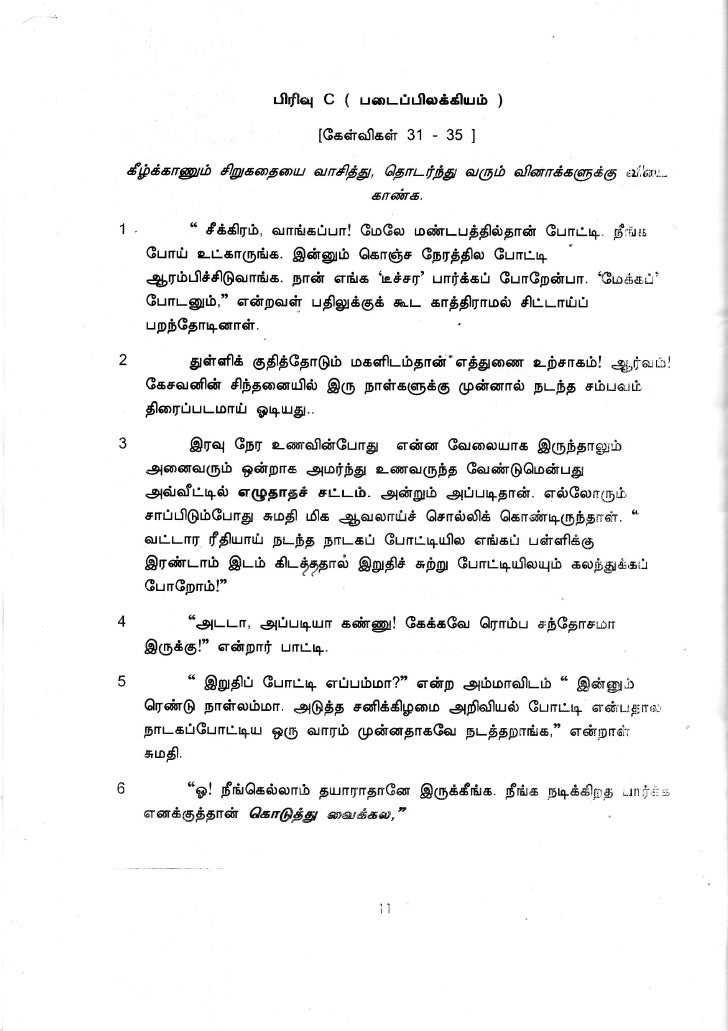 பிரிவு C ( படைப்பிலக்கியம் )
[கேள்விகள் 31 - 35 ]
கீழ்க்காணும் சிறுகதையை வாசித்து, தொடர்ந்து வரும் வினாக்களுக்கு விடை
காண்க.
1 " சீக்கிரம், வாங்கப்பா! மேலே மண்டபத்தில்தான் போட்டி. நீங்க
போய் உட்காருங்க. இன்னும் கொஞ்ச நேரத்தில போட்டி
ஆரம்பிச்சிடுவாங்க. நான் எங்க 'டீச்சர' பார்க்கப் போறேன்பா. 'மேக்கப்'
போடனும்," என்றவள் பதிலுக்குக் கூட காத்திராமல் சிட்டாய்ப்
பறந்தோடினாள்.
2 துள்ளிக் குதித்தோடும் மகளிடம்தான் எத்துணை உற்சாகம்! ஆர்வம்!
கேசவனின் சிந்தனையில் இரு நாள்களுக்கு முன்னால் நடந்த சம்பவம்
திரைப்படமாய் ஓடியது..
3 இரவு நேர உணவின்போது என்ன வேலையாக இருந்தாலும்
அனைவரும் ஒன்றாக அமர்ந்து உணவருந்த வேண்டுமென்பது
அவ்வீட்டில் எழுதாதச் சட்டம். அன்றும் அப்படிதான். எல்லோரும்
சாப்பிடும்போது சுமதி மிக ஆவலாய்ச் சொல்லிக் கொண்டிருந்தாள். "
வட்டார ரீதியாய் நடந்த நாடகப் போட்டியில எங்கப் பள்ளிக்கு
இரண்டாம் இடம் கிடத்ததால் இறுதிச் சுற்று போட்டியிலயும் கலந்துக்கப்
போறோம்!"
4 "அடடா, அப்படியா கண்ணு! கேக்கவே ரொம்ப சந்தோசமா
இருக்கு!" என்றார் பாட்டி.
5 " இறுதிப் போட்டி எப்பம்மா?" என்ற அம்மாவிடம் " இன்னும்
ரெண்டு நாள்லம்மா. அடுத்த சனிக்கிழமை அறிவியல் போட்டி என்பதால
நாடகப்போட்டிய ஒரு வாரம் முன்னதாகவே நடத்தறாங்க," என்றாள்
சுமதி.
6 "ஓ! நீங்கெல்லாம் தயாராதானே இருக்கீங்க. நீங்க நடிக்கிறத பார்க்க
எனக்குத்தான் கொடுத்து வைக்கல,"
11